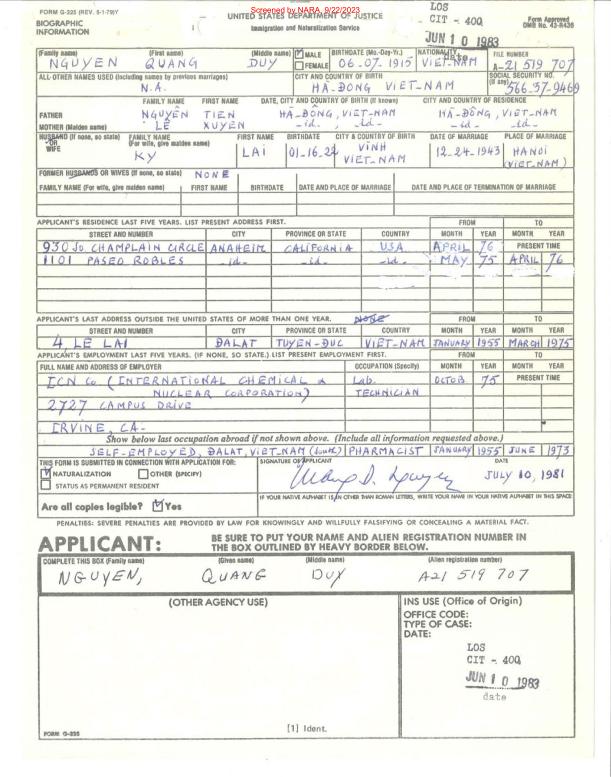 FORM G-325 (REV. 5-1-79)Y
BIOGRAPHIC
INFORMATION
Screened by NARA, 9/22/2023
UNITED STATES DEPARTMENT OF JUSTICE
Immigration and Naturalization Service
LOS
CIT - 400
JUN 10 1983
date
Form Approved
OMB No. 43-R436
(Family name) (First name) (Middle name) MALE FEMALE BIRTHDATE (Mo.-Day-Yr.) NATIONALITY FILE NUMBER
NGUYEN QUANG DUY 06.07.1915 VIET-NAM A-21 519 707
ALL OTHER NAMES USED (Including names by previous marriages) CITY AND COUNTRY OF BIRTH SOCIAL SECURITY NO. (If any)
N.A. HA-DONG VIET-NAM 566.37-9469
FAMILY NAME FIRST NAME DATE, CITY AND COUNTRY OF BIRTH (If known) CITY AND COUNTRY OF RESIDENCE
FATHER NGUYÊN TIEN HÀ-DÔNG, VIET-NAM HÀ-DÔNG, VIET-NAM
MOTHER (Maiden name) LÊ XUYEN -id- , -id- -id- -id-
HUSBAND (If none, so state) OR WIFE FAMILY NAME (For wife, give maiden name) FIRST NAME BIRTHDATE CITY & COUNTRY OF BIRTH DATE OF MARRIAGE PLACE OF MARRIAGE
KY LAI 01-16-22 VINH VIET-NAM 12-24-1943 HANOI (VIET-NAM)
FORMER HUSBANDS OR WIVES (If none, so state) NONE
FAMILY NAME (For wife, give maiden name) FIRST NAME BIRTHDATE DATE AND PLACE OF MARRIAGE DATE AND PLACE OF TERMINATION OF MARRIAGE
APPLICANT'S RESIDENCE LAST FIVE YEARS. LIST PRESENT ADDRESS FIRST. FROM TO
STREET AND NUMBER CITY PROVINCE OR STATE COUNTRY MONTH YEAR MONTH YEAR
930 So CHAMPLAIN CIRCLE ANAHEIM CALIFORNIA USA APRIL 76 PRESENT TIME
1101 PASEO ROBLES -id- -id- -id- MAY 75 APRIL 76
APPLICANT'S LAST ADDRESS OUTSIDE THE UNITED STATES OF MORE THAN ONE YEAR. NONE FROM TO
STREET AND NUMBER CITY PROVINCE OR STATE COUNTRY MONTH YEAR MONTH YEAR
4 LE LAI DALAT TUYEN-DUC VIET-NAM JANUARY 1955 MARCH 1975
APPLICANT'S EMPLOYMENT LAST FIVE YEARS. (IF NONE, SO STATE.) LIST PRESENT EMPLOYMENT FIRST. FROM TO
FULL NAME AND ADDRESS OF EMPLOYER OCCUPATION (Specify) MONTH YEAR MONTH YEAR
ICN Co (INTERNATIONAL CHEMICAL & Lab. OCTOB 75 PRESENT TIME
NUCLEAR CORPORATION) TECHNICIAN
2727 CAMPUS DRIVE
IRVINE, CA-
Show below last occupation abroad if not shown above. (Include all information requested above.)
SELF-EMPLOYED, DALAT, VIET-NAM (South) PHARMACIST JANUARY 1955 JUNE 1973
THIS FORM IS SUBMITTED IN CONNECTION WITH APPLICATION FOR: SIGNATURE OF APPLICANT DATE
NATURALIZATION OTHER (SPECIFY)
STATUS AS PERMANENT RESIDENT
JULY 10, 1981
Are all copies legible? Yes
IF YOUR NATIVE ALPHABET IS IN OTHER THAN ROMAN LETTERS, WRITE YOUR NAME IN YOUR NATIVE ALPHABET IN THIS SPACE
PENALTIES: SEVERE PENALTIES ARE PROVIDED BY LAW FOR KNOWINGLY AND WILLFULLY FALSIFYING OR CONCEALING A MATERIAL FACT.
APPLICANT: BE SURE TO PUT YOUR NAME AND ALIEN REGISTRATION NUMBER IN
THE BOX OUTLINED BY HEAVY BORDER BELOW.
COMPLETE THIS BOX (Family name) (Given name) (Middle name) (Alien registration number)
NGUYEN, QUANG DUY A21 519 707
(OTHER AGENCY USE)
INS USE (Office of Origin)
OFFICE CODE:
TYPE OF CASE:
DATE:
LOS
CIT - 400
JUN 10 1983
date
[1] Ident.
FORM G-325